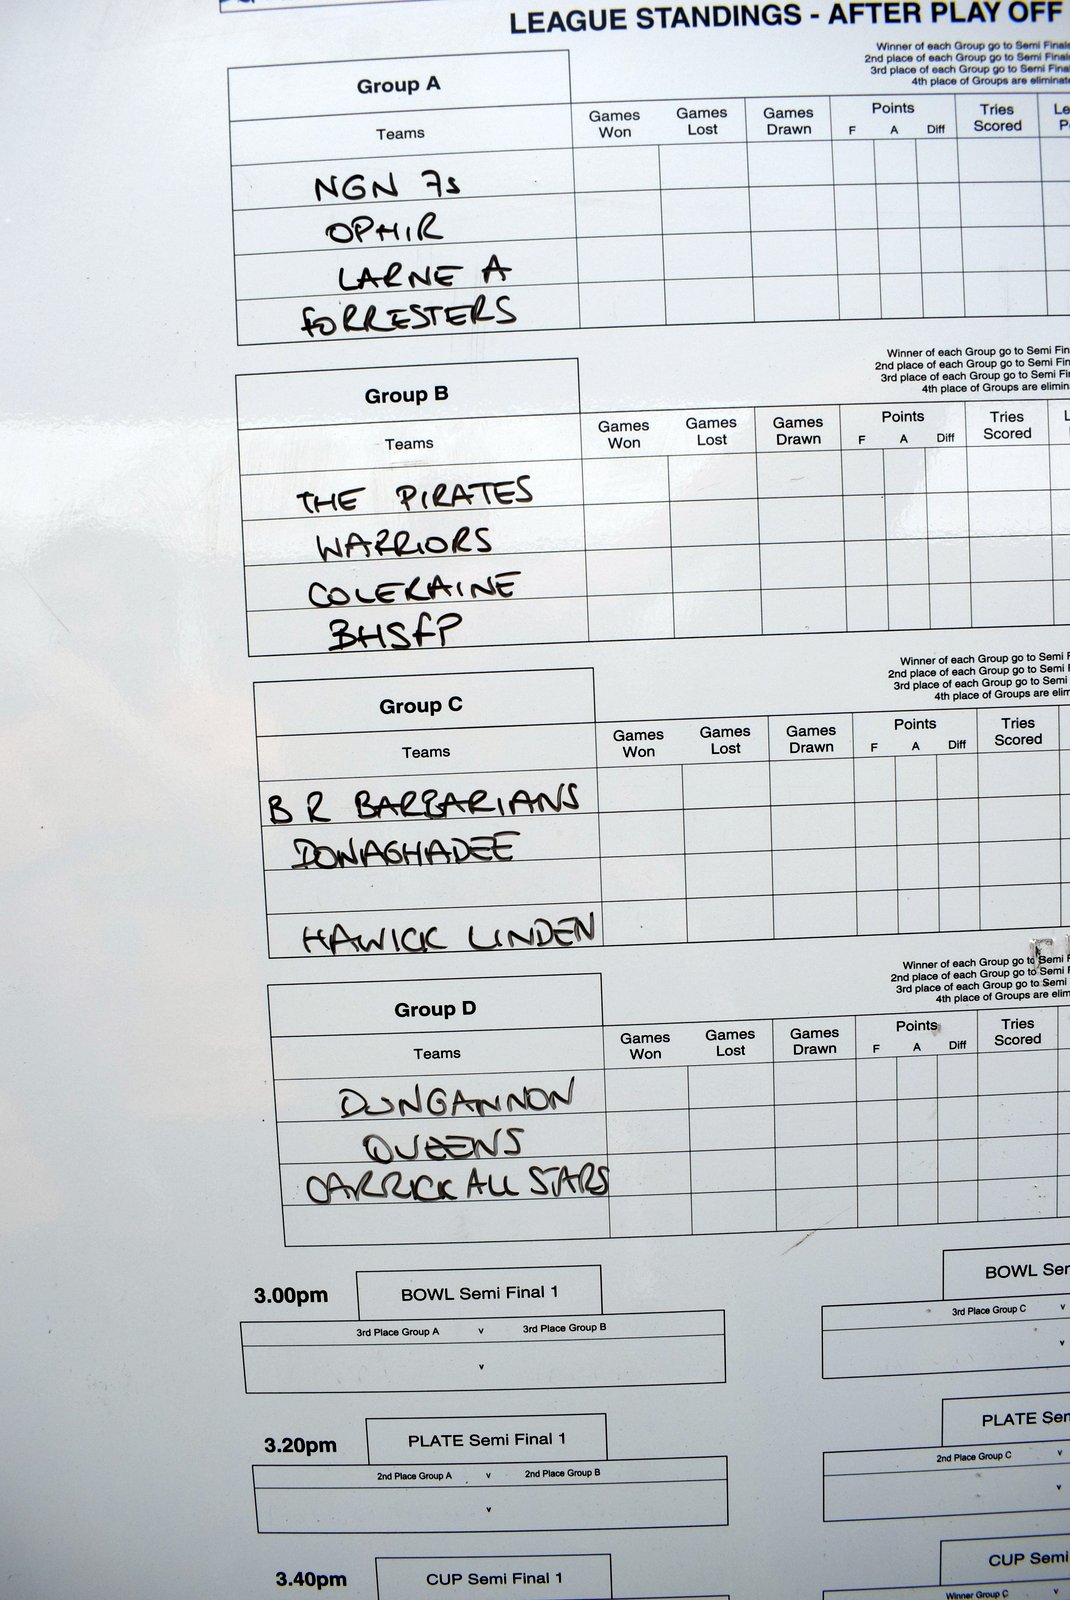 LEAGUE STANDINGS - AFTER PLAY OFF
Winner of each Group go to Semi Finals
2nd place of Group go to Semi Finals
3rd place of Group go to Semi Final
4th place of Groups are eliminate
Group A
Teams Games Won Games Lost Games Drawn Points F A Diff Tries Scored
NGN 7s
OPHIR
LARNE A
FORRESTERS
Winner of each Group go to Semi Fin
2nd place of each Group go to Semi Fin
3rd place of each Group go to Semi Fi
4th place of Groups are elimin
Group B
Teams Games Won Games Lost Games Drawn Points F A Diff Tries Scored
THE PIRATES
WARRIORS
COLERAINE
BHSFP
Winner of each Group go to Semi F
2nd place of each Group go to Semi
3rd place of each Group go to Semi
4th place of Groups are elim
Group C
Teams Games Won Games Lost Games Drawn Points F A Diff Tries Scored
B R BARBARIANS
DONAGHADEE
HAWICK LINDEN
Winner of each Group go to Semi F
2nd place of each Group go to Semi F
3rd place of each Group go to Semi
4th place of Groups are elim
Group D
Teams Games Won Games Lost Games Drawn Points F A Diff Tries Scored
DUNGANNON
QUEENS
CARRICK ALL STARS
3.00pm BOWL Semi Final 1 BOWL Ser
3rd Place Group A v 3rd Place Group B 3rd Place Group C v
v v
3.20pm PLATE Semi Final 1 PLATE Ser
2nd Place Group A v 2nd Place Group B 2nd Place Group C v
v v
3.40pm CUP Semi Final 1 CUP Semi
Winner Group C v